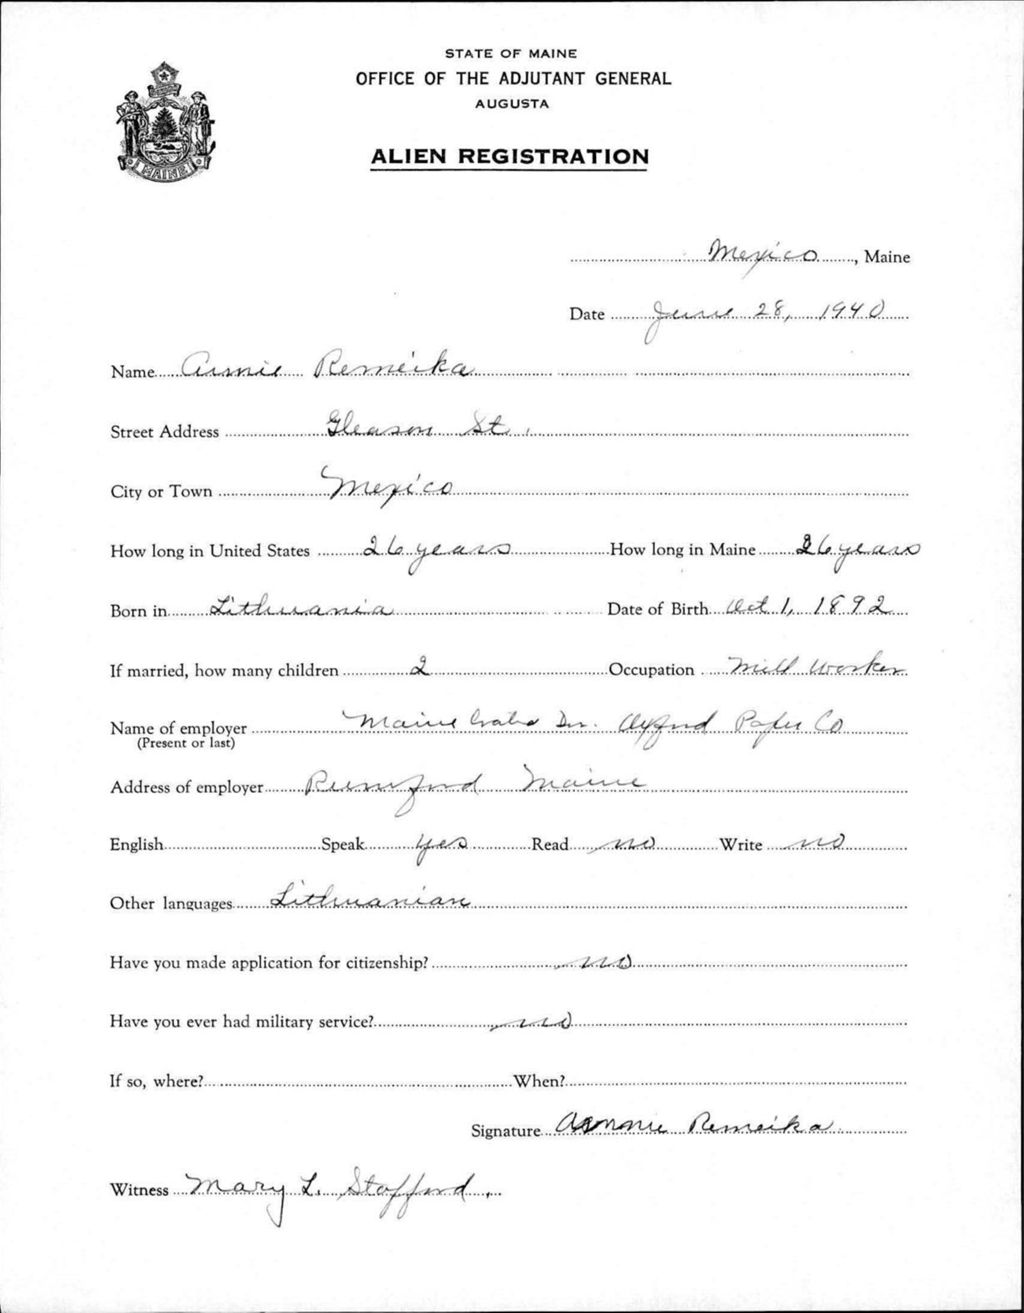 STATE OF MAINE
OFFICE OF THE ADJUTANT GENERAL
AUGUSTA
ALIEN REGISTRATION
MAINE
Mexico, Maine
Date June 28, 1940
Name Annie Remeika
Street Address Gleason St.
City or Town Mexico
How long in United States 26 years How long in Maine 26 years
Born in Lithuania Date of Birth Oct 1, 1892
If married, how many children 2 Occupation Mill Worker
Name of employer Maine Div. Oxford Paper Co
(Present or last)
Address of employer Rumford Maine
English Speak yes Read no Write no
Other languages Lithuanian
Have you made application for citizenship? no
Have you ever had military service? no
If so, where? When?
Signature Remeika
Witness Mary L. Stafford.